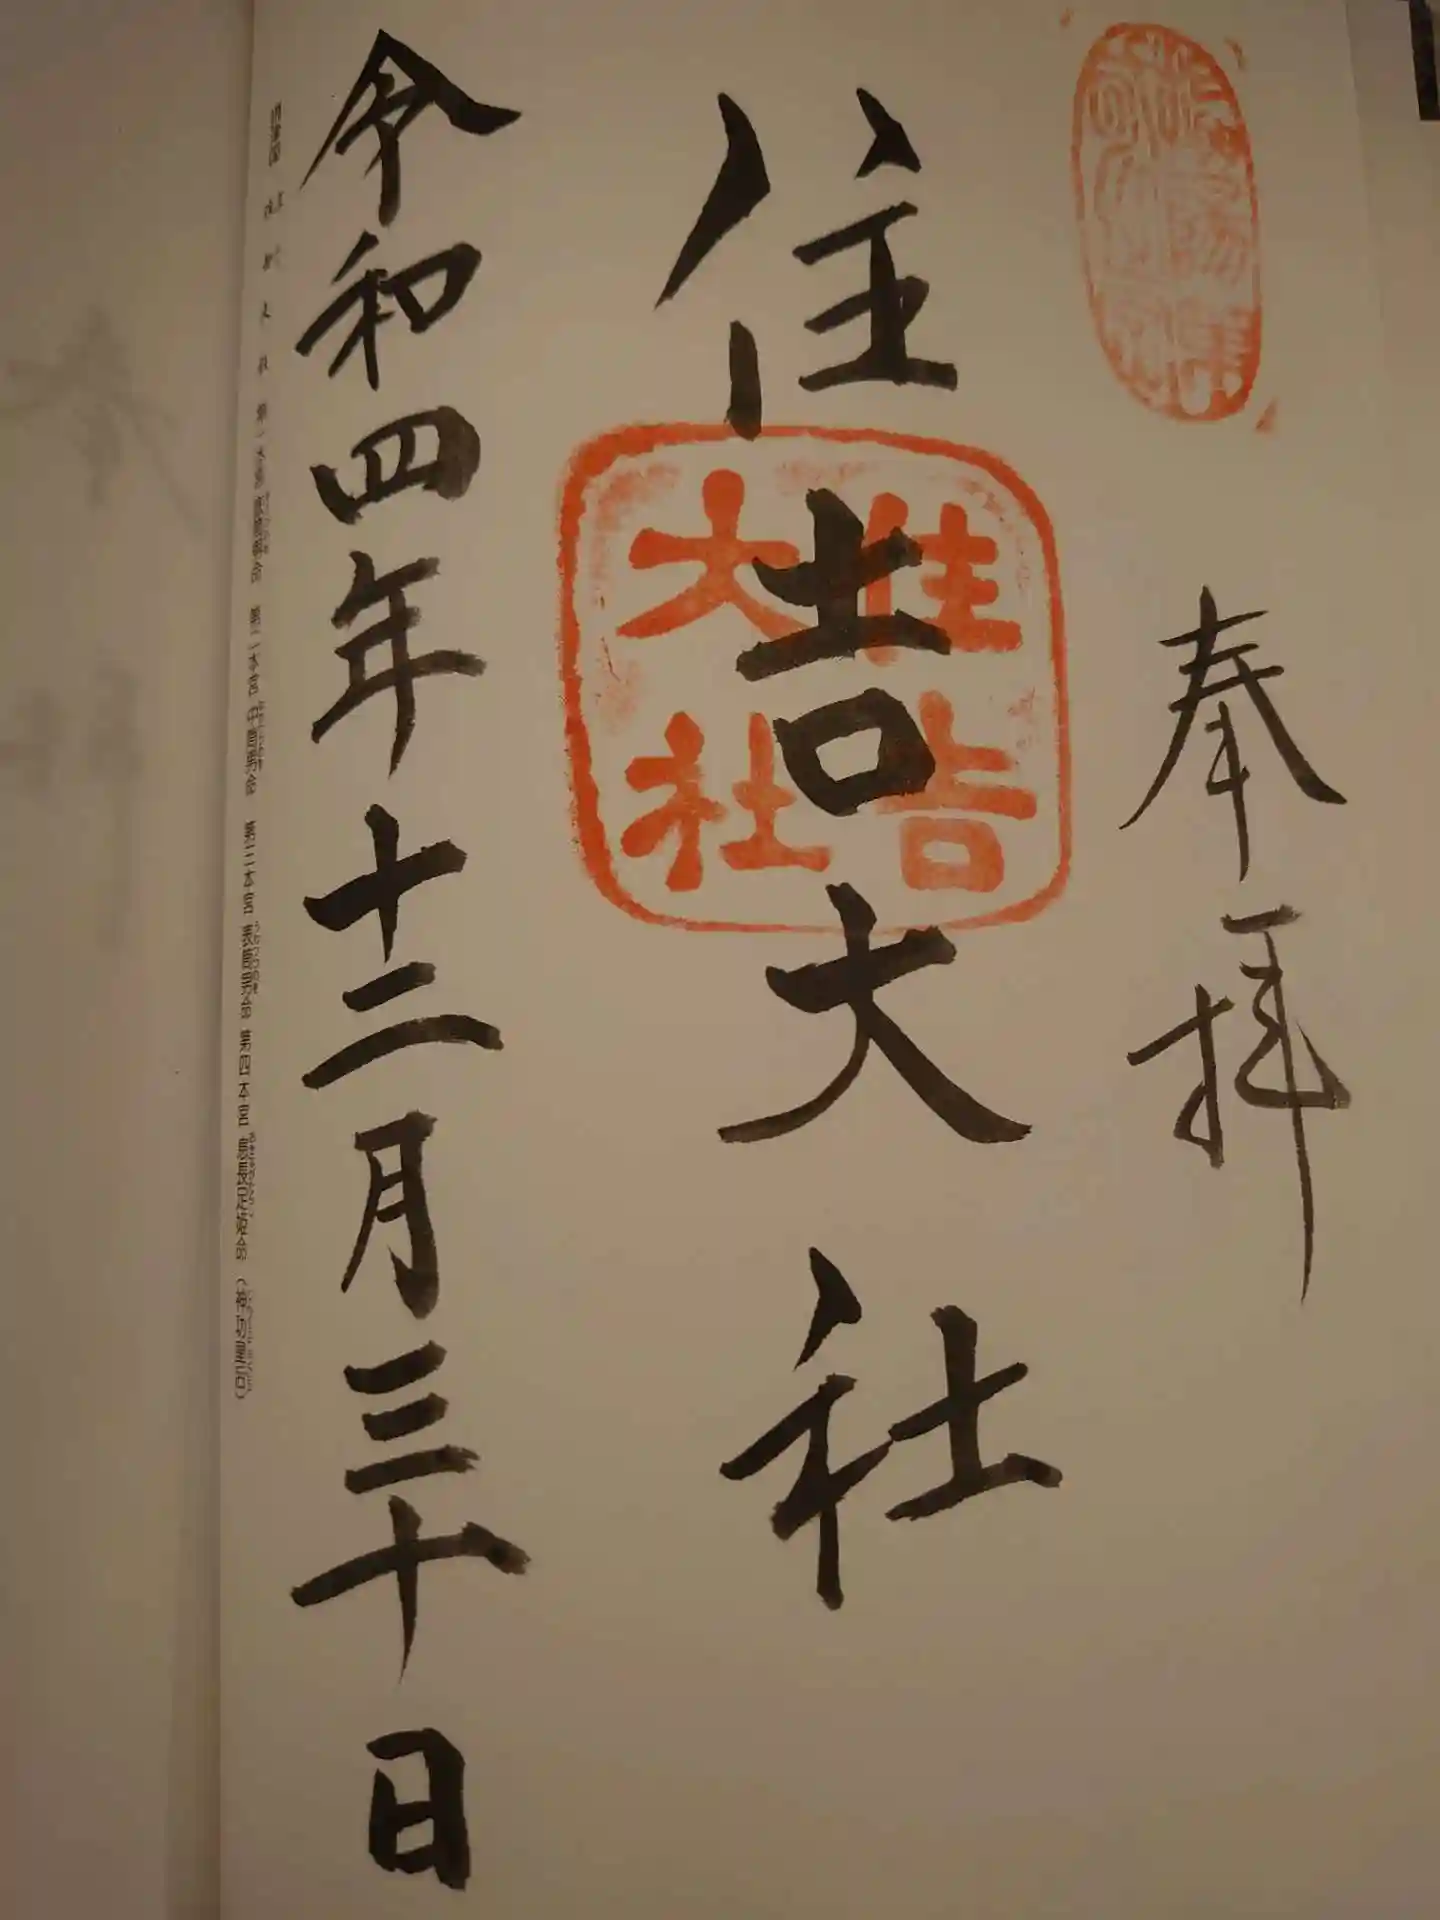 奉拝
住吉大社
住吉
大社
令和四年十二月三十日
第一本宮 底筒男命 第二本宮 中筒男命 第三本宮 表筒男命 第四本宮 息長足姫命 (神功皇后)